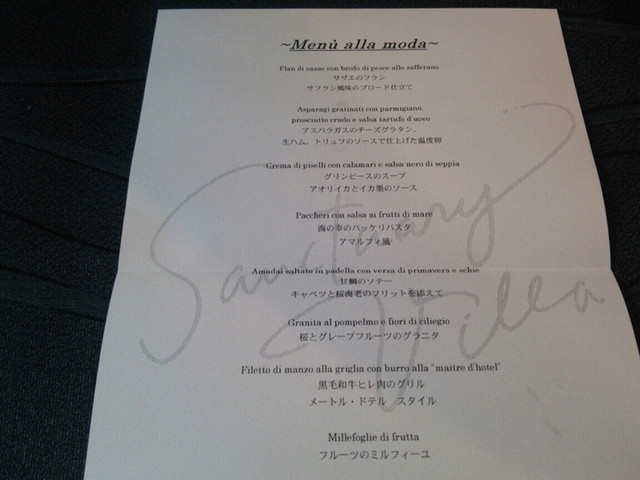 ~Menù alla moda~
Flan di sazae con brodo di pesce allo zafferano
サザエのフラン
サフラン風味のブロード仕立て
Asparagi gratinati con parmigiano,
prosciutto crudo e salsa tartufo d'uovo
アスパラガスのチーズグラタン、
生ハム、トリュフのソースで仕上げた温度卵
Crema di piselli con calamari e salsa nero di seppia
グリンピースのスープ
アオリイカとイカ墨のソース
Paccheri con salsa ai frutti di mare
海の幸のパッケリパスタ
アマルフィ風
Amadai saltato in padella con verza di primavera e schie
甘鯛のソテー
キャベツと桜海老のフリットを添えて
Granita al pompelmo e fiori di ciliegio
桜とグレープフルーツのグラニタ
Filetto di manzo alla griglia con burro alla "maitre d'hotel"
黒毛和牛ヒレ肉のグリル
メートル・ドテル スタイル
Millefoglie di frutta
フルーツのミルフィーユ
Sanctuary
Villa